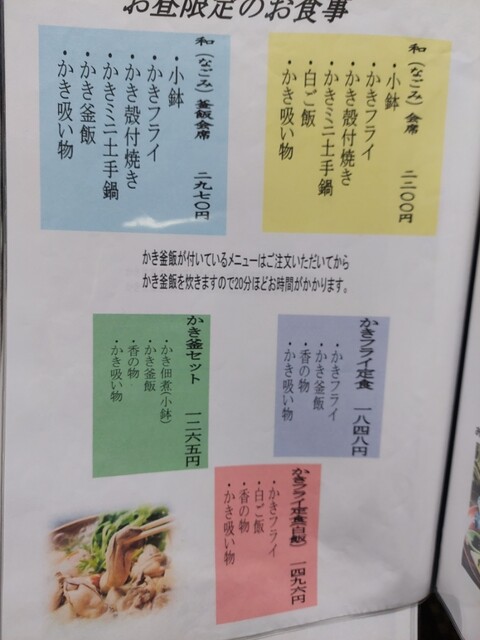 お昼限定のお食事
和(なごみ)会席 二二〇〇円
・小鉢
・かきフライ
・かき殻付焼き
・かきミニ土手鍋
・白ご飯
・かき吸い物
和(なごみ)釜飯会席 二九七〇円
・小鉢
・かきフライ
・かき殻付焼き
・かきミニ土手鍋
・かき釜飯
・かき吸い物
かき釜飯が付いているメニューはご注文いただいてから
かき釜飯を炊きますので20分ほどお時間がかかります。
かきフライ定食 一八四八円
・かきフライ
・かき釜飯
・香の物
・かき吸い物
かき釜セット 一二六五円
・かき佃煮(小鉢)
・かき釜飯
・香の物
・かき吸い物
かきフライ定食(白飯) 一四九六円
・かきフライ
・白ご飯
・香の物
・かき吸い物